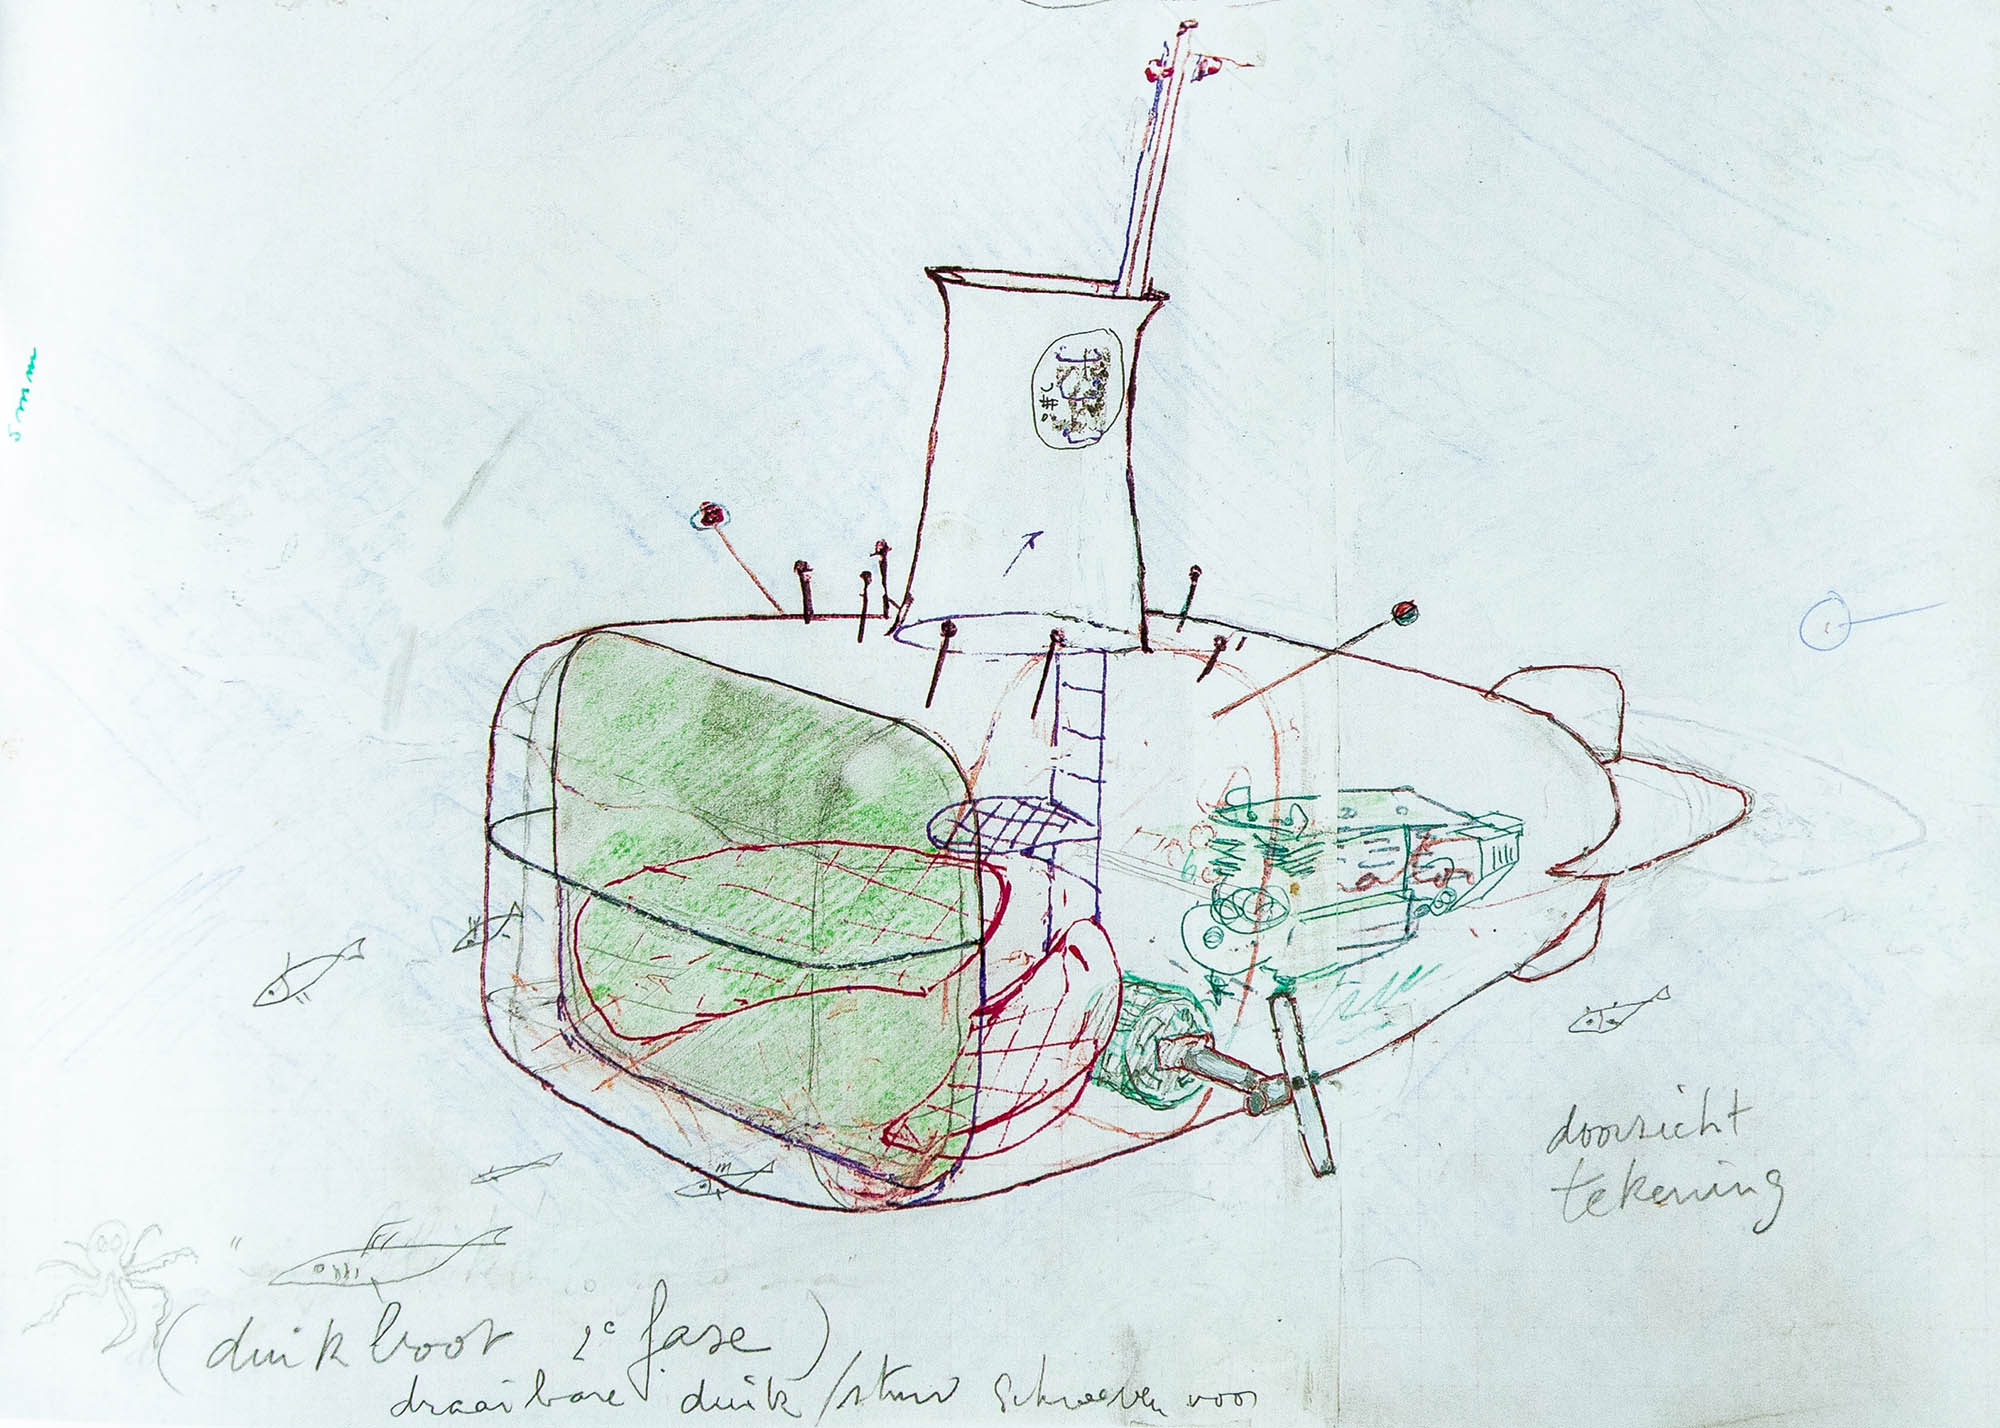 5 mm
doorzicht
tekening
(duikboot 2e fase)
draaibare duik/stuur schroeven voor